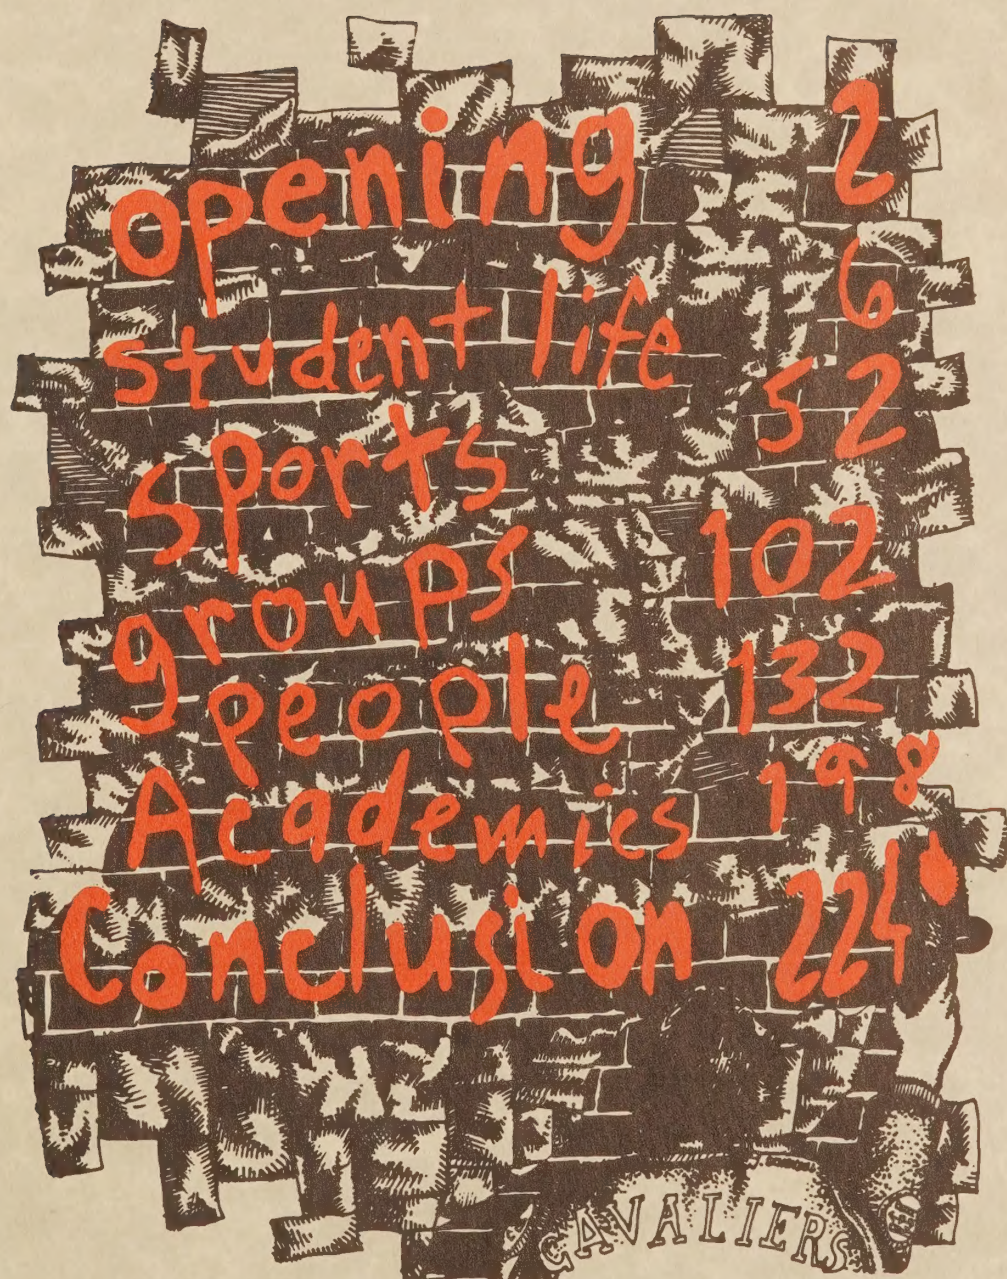 opening 2
student life 6
sports 52
groups 102
people 132
Academics 198
Conclusion 224
CAVALIERS